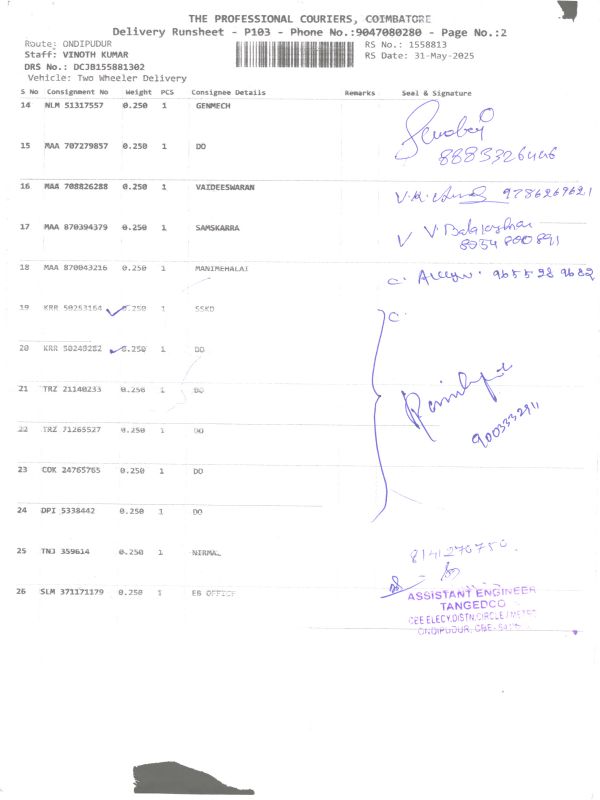 THE PROFESSIONAL COURIERS, COIMBATORE
Delivery Runsheet - P103 - Phone No.:9047080280 - Page No.:2
Route: ONDIPUDUR RS No.: 1558813
Staff: VINOTH KUMAR RS Date: 31-May-2025
DRS No.: DCJB155881302
Vehicle: Two Wheeler Delivery
S No Consignment No Weight PCS Consignee Details Remarks Seal & Signature
14 NLM 51317557 0.250 1 GENMECH
15 MAA 707279857 0.250 1 DO
8883326446
16 MAA 708826288 0.250 1 VAIDEESWARAN
9786269621
17 MAA 870394379 0.250 1 SAMSKARRA
8054800891
18 MAA 870043216 0.250 1 MANIMEHALAI
9655289682
19 KRR 50253164 0.250 1 SSKD
20 KRR 50248282 0.250 1 DO
21 TRZ 21140233 0.250 1 DO
9003332911
22 TRZ 71265527 0.250 1 DO
23 COK 24765765 0.250 1 DO
24 DPI 5338442 0.250 1 DO
25 TNJ 359614 0.250 1 NIRMAL
8141270750
26 SLM 371171179 0.250 1 EB OFFICE
ASSISTANT ENGINEER
TANGEDCO
CBE ELECY.DISTN.CIRCLE / METRO
ONDIPUDUR, CBE-